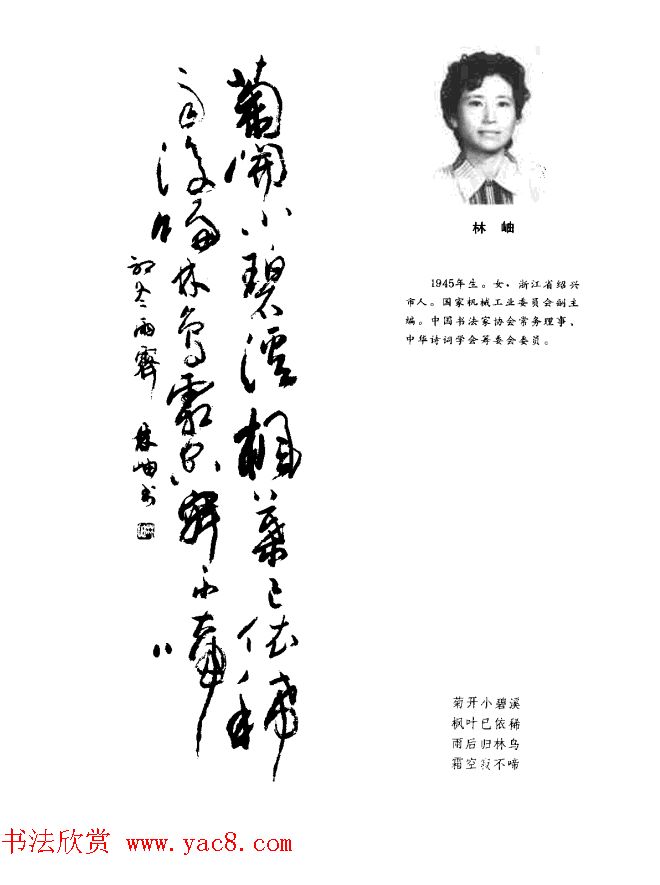 菊開小碧溪楓葉已依稀
雨後歸林鳥霜空寂不啼
初冬雨霽 林岫书
林 岫
1945年生。女，浙江省绍兴
市人。国家机械工业委员会副主
编。中国书法家协会常务理事、
中华诗词学会筹委会委员。
菊开小碧溪
枫叶已依稀
雨后归林鸟
霜空寂不啼
书法欣赏 www.yac8.com